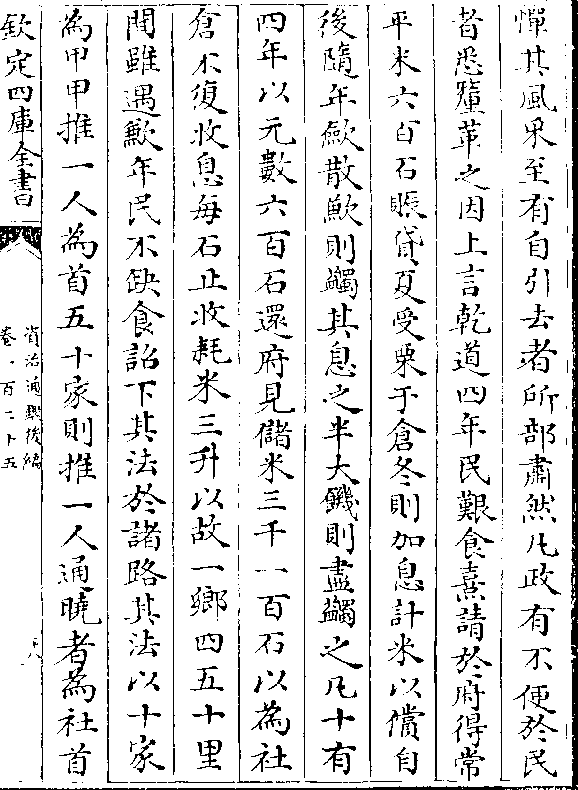 憚其風采至有自引去者所部肅然凡政有不便於民
者悉釐革之因上言乾道四年民艱食熹請於府得常
平米六百石賑貸夏受粟于倉冬則加息計米以償自
後隨年歛散歉則蠲其息之半大饑則盡蠲之凡十有
四年以元數六百石還府見儲米三千一百石以為社
倉不復收息每石止收耗米三升以故一鄉四五十里
間雖遇歉年民不缺食詔下其法於諸路其法以十家
為甲甲推一人為首五十家則推一人通曉者為社首
欽定四庫全書
資治通鑑後編
卷一百二十五
十八